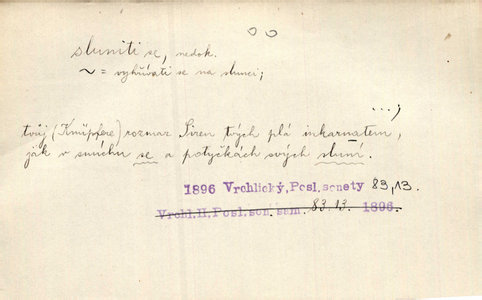 sluniti se, nedok.
~ = vyhřívati se na slunci;
...;
tvůj (Knüpfere) rozmar Siren tvých plá inkarnatem,
jak v smíchu se a potyčkách svých sluní.
1896 Vrchlický, Posl. sonety 83,13.
Vrchl. II. Posl. son. sam. 83,13. 1896.